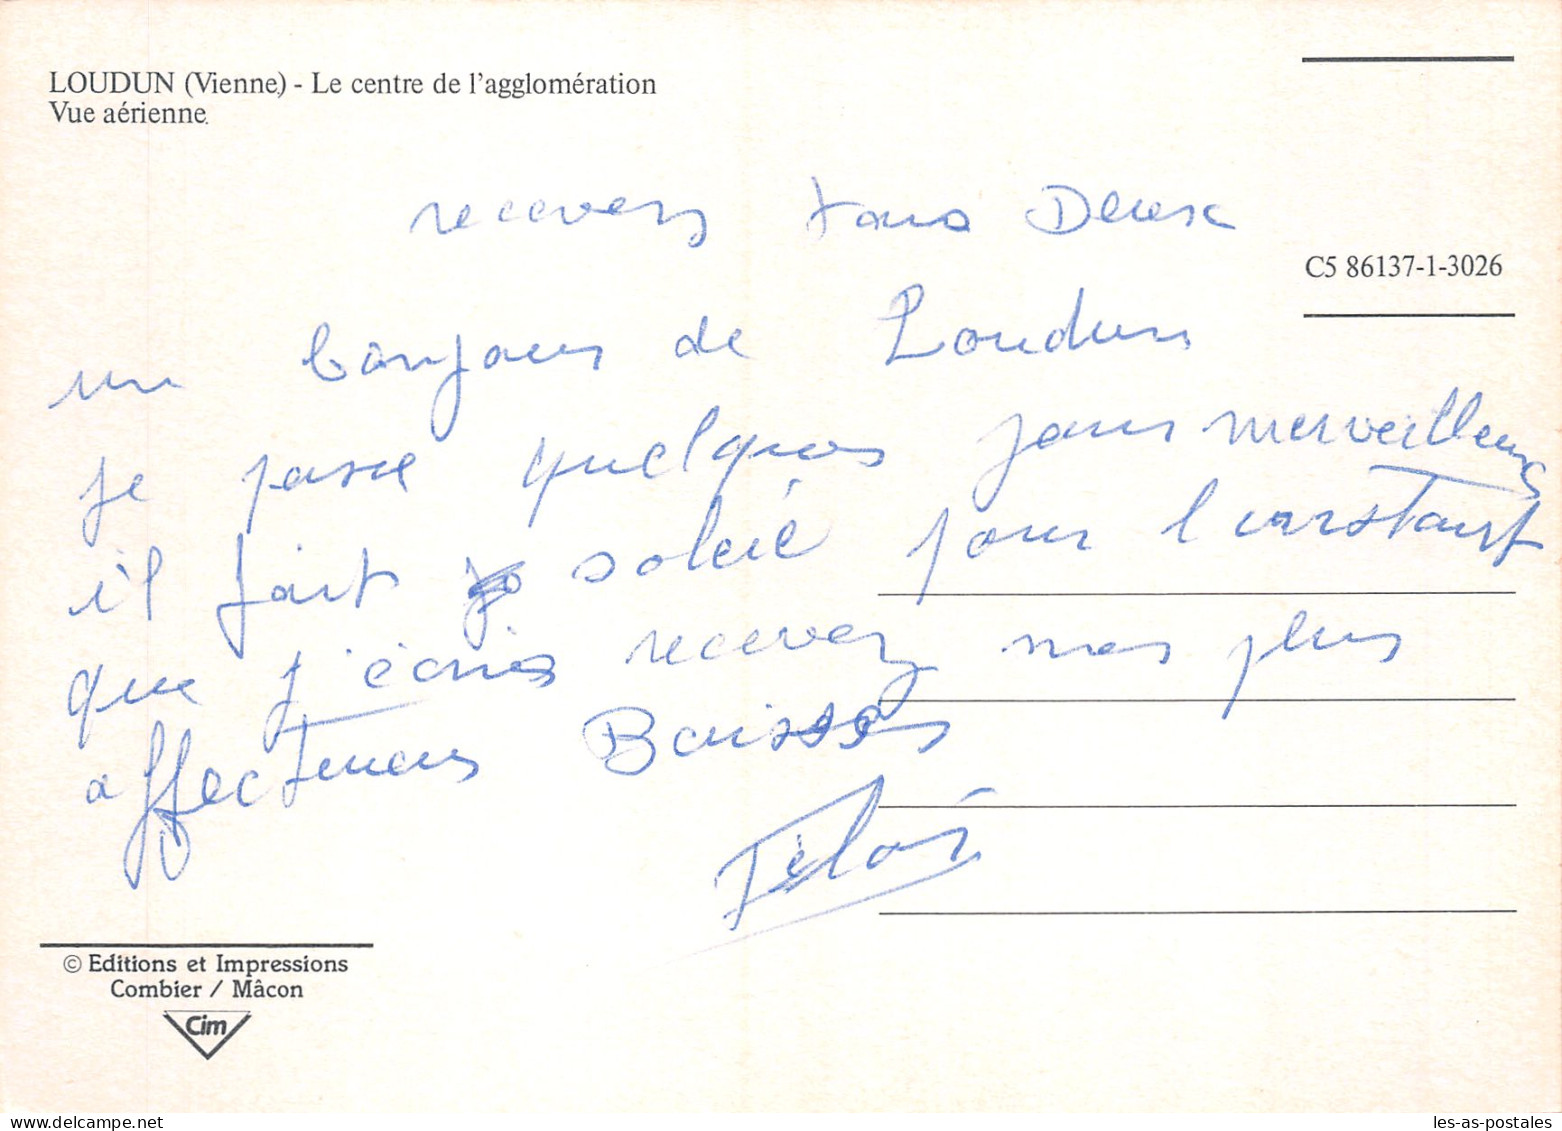 LOUDUN (Vienne) - Le centre de l'agglomération
Vue aérienne.
recevez tous Deux
C5 86137-1-3026
un bonjour de Loudun
je passe quelques jours merveilleux
il fait soleil pour l'instant
que j'écris recevez mes plus
affectueux Baisers
© Editions et Impressions
Combier / Mâcon
Cim
www.delcampe.net
les-as-postales